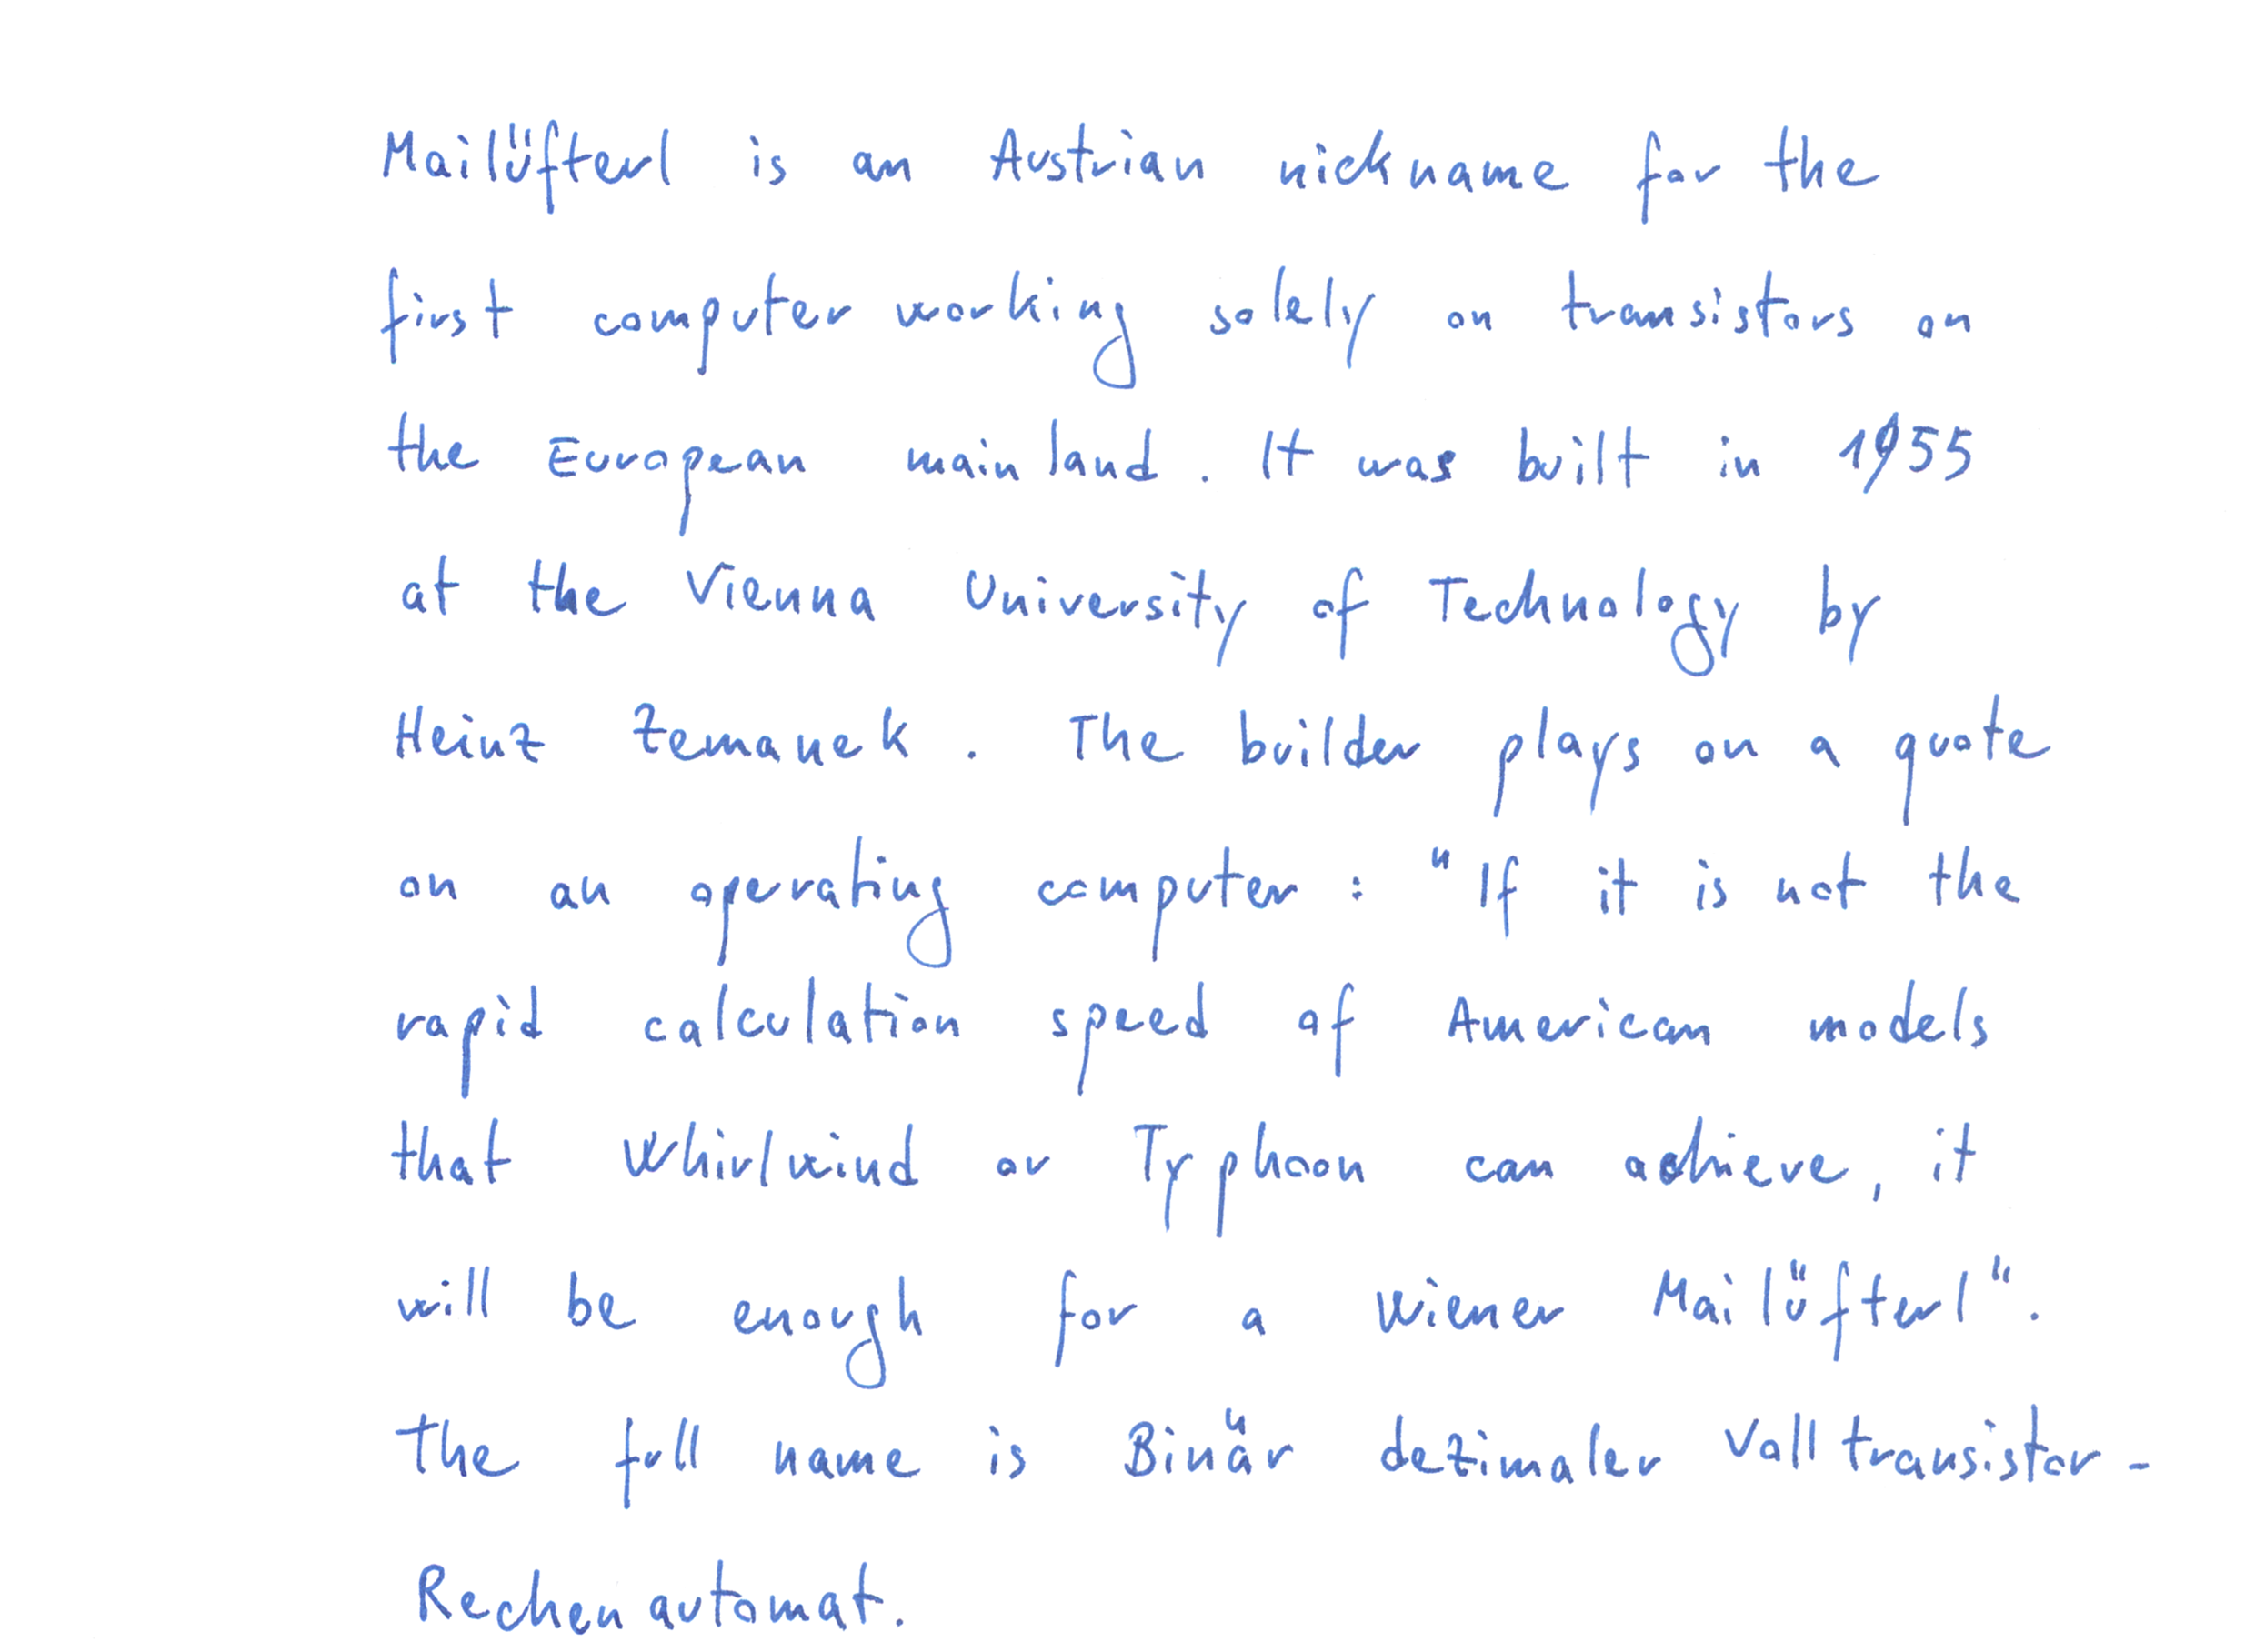 Mailüfterl is an Austrian nickname for the
first computer working solely on transistors on
the European mainland. It was built in 1955
at the Vienna University of Technology by
Heinz Zemanek. The builder plays on a quote
on an operating computer: "If it is not the
rapid calculation speed of American models
that Whirlwind or Typhoon can achieve, it
will be enough for a Wiener Mailüfterl".
The full name is Binär dezimaler Volltransistor-
Rechenautomat.